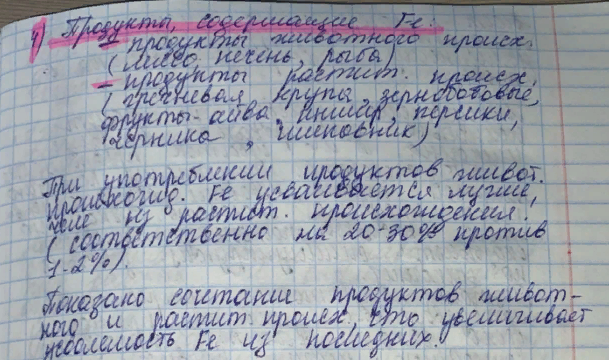 4) Продукты, содержащие Fe:
- продукты животного происх.
(мясо, печень, рыба)
- продукты растит. происх.
(гречневая крупа, зернобобовые,
фрукты-айва, инжир, персики,
черника, шиповник)
При употреблении продуктов живот.
происхожд. Fe усваивается лучше,
чем из растит. происхождения.
(соответственно на 20-30% против
1-2%)
Показано сочетание продуктов живот-
ного и растит. происх, это увеличивает
усвояемость Fe из последних.